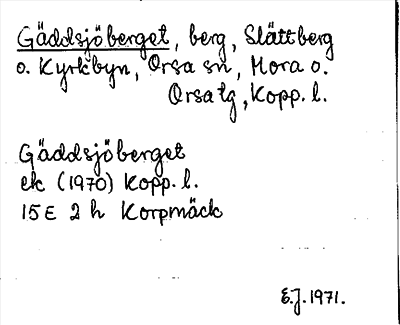 Gäddsjöberget, berg, Slättberg
o. Kyrkbyn, Orsa sn, Mora o.
Orsa tg, Kopp. l.
Gäddsjöberget
ek (1970) Kopp. l.
15E 2h Korpmäck
E.J. 1971.